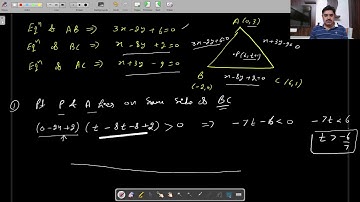 A (0, 3)
Eqⁿ of AB => 3x-2y+6=0 ✓
3x-2y+6=0
x+3y-9=0
Eqⁿ of BC => x-8y+2=0
•P(t, t+1)
Eqⁿ of AC => x+3y-9=0
B
(-2,0)
x-8y+2=0
C (6,1)
① Pt P & A lies on same side of BC
(0-24+2) (t-8t-8+2) > 0 => -7t-6<0
-7t<6
t > -6/7